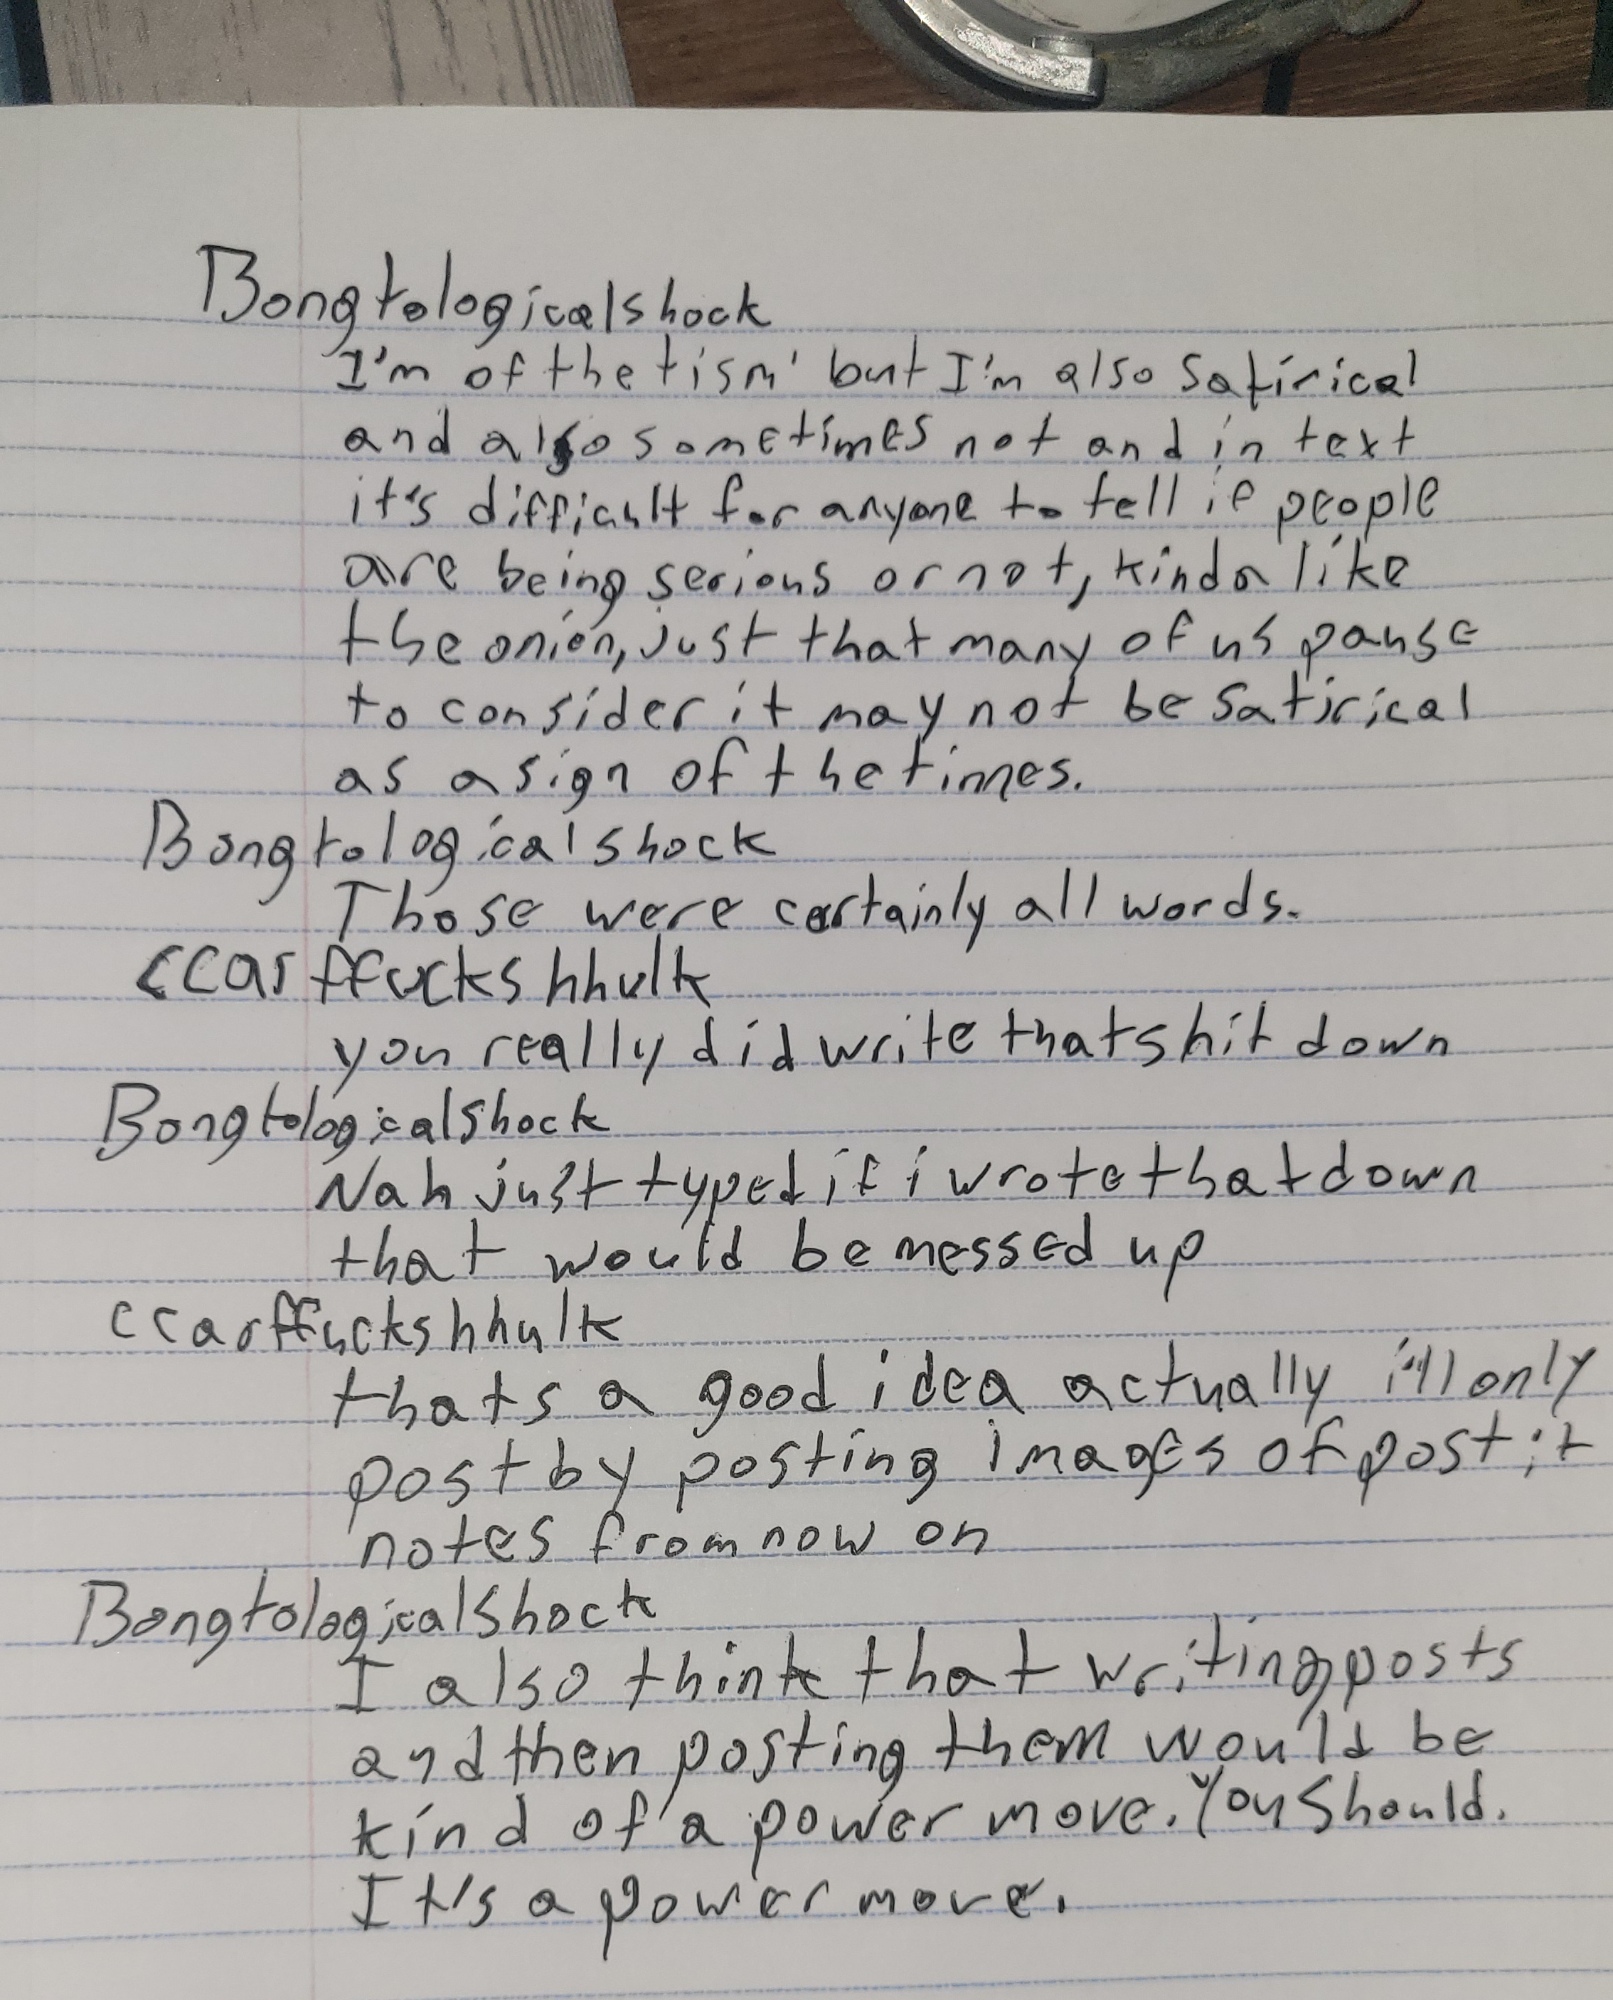 Bongtologicalshock
I'm of the tism' but I'm also satirical
and also sometimes not and in text
it's difficult for anyone to tell if people
are being serious or not, kinda like
the onion, just that many of us pause
to consider it may not be satirical
as a sign of the times.
Bongtologicalshock
Those were certainly all words.
ccarffuckshhulk
you really did write that shit down
Bongtologicalshock
Nah just typed if i wrote that down
that would be messed up
ccarffuckshhulk
thats a good idea actually i'll only
post by posting images of post it
notes from now on
Bongtologicalshock
I also think that writing posts
and then posting them would be
kind of a power move. You should.
It's a power move.